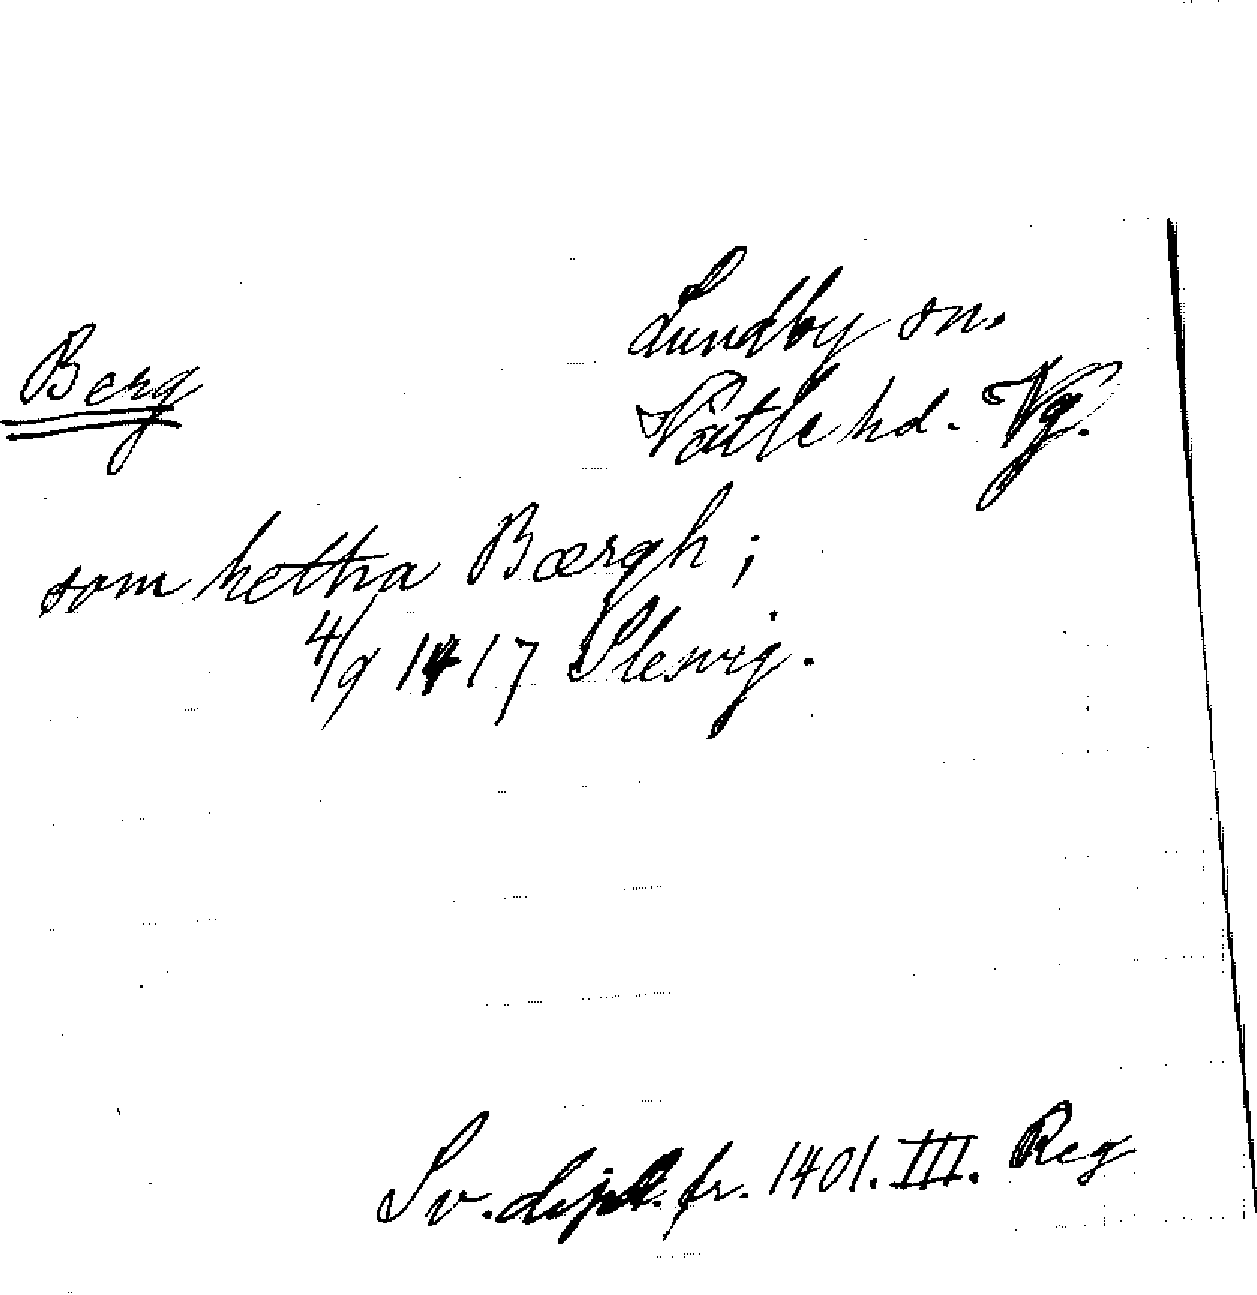 Lundby sn.
Berg
Vätle hd. Vg.
som hetha Bærgh;
4/9 1417 Slesvig.
Sv. dipl. fr. 1401. III. Reg